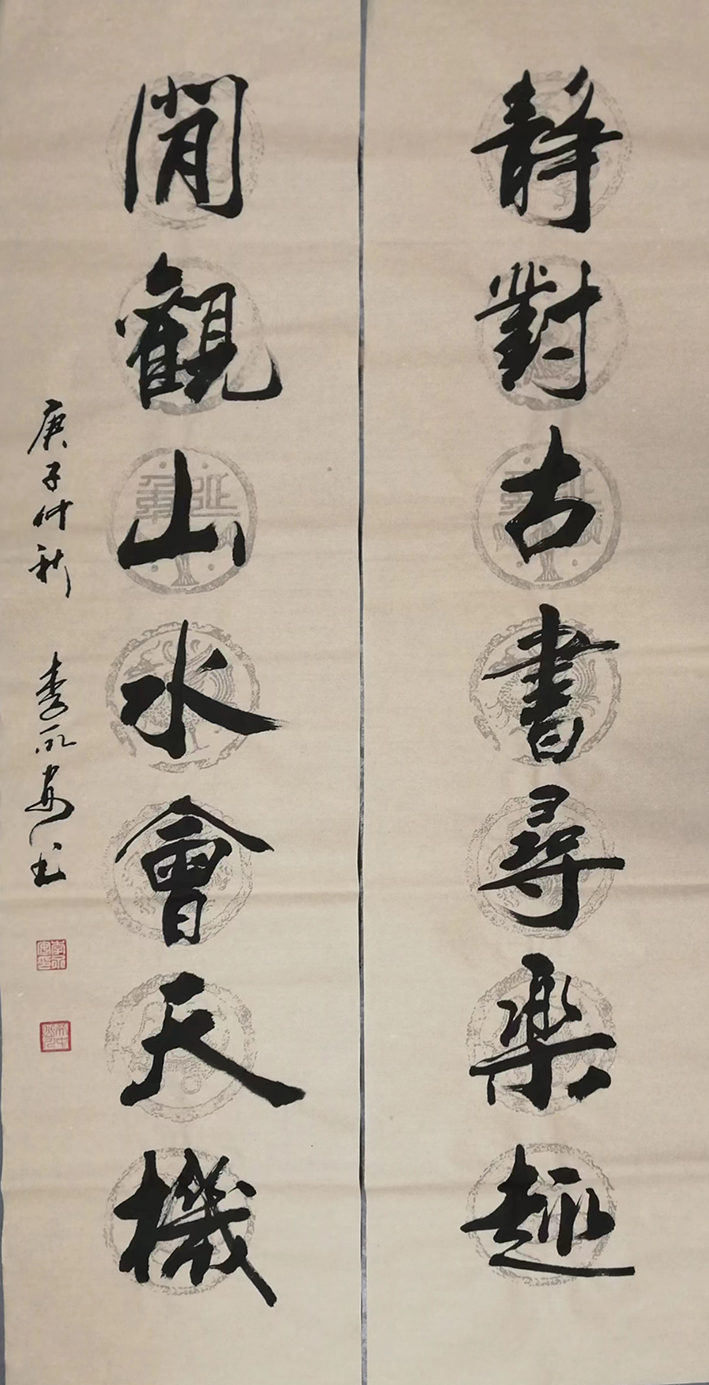 靜對古書尋樂趣
閒觀山水會天機
庚子仲秋 李永安书